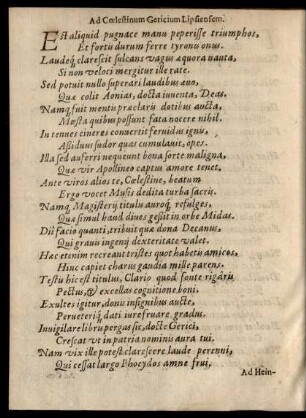 Ad Cœlestinum Gericium Lipsiensem.
Est aliquid pugnace manu peperisse triumphos,
Et fortu durum ferre tyronis onus.
Laudeq́; clarescit sulcans vagus æquora nauta,
Si non veloci mergitur ille rate.
Sed potuit nullo superari laudibus ævo,
Quæ colit Aonias, docta iuventa, Deas.
Namq́; fuit mentis præclaris dotibus aucta,
Mæsta quibus possunt fata nocere nihil.
In tenues cineres convertit fervidus ignis,
Assiduus sudor quas cumulauit, opes.
Illa sed auferri nequeunt bona sorte maligna,
Quæ vir Apollineo captus amore tenet.
Ante viros alios te, Cœlestine, beatum
Ergo vocet Musis dedita turba sacris.
Namq́; Magisterij titulu auroq́; refulges,
Quæ simul haud dives gessit in orbe Midas.
Dij facio quanti, tribuit quæ dona Decanus,
Qui gravis ingenij dexteritate valet.
Hæc etenim recreant tristes quot habetis amicos,
Hinc capiet charus gaudia mille parens.
Testis hic est titulus, Clario quod fonte rigaris
Pectus, & excellas cognitione boni.
Exultes igitur, donis insignibus aucte,
Pervenerisq́; dati iure fruare gradus.
Invigilare libris pergas sic, docte Gerici,
Crescat vt in patria nominis aura tui.
Nam vix ille potest clarescere laude perenni,
Qui cessat largo Phocydos amne frui,
Ad Hein-